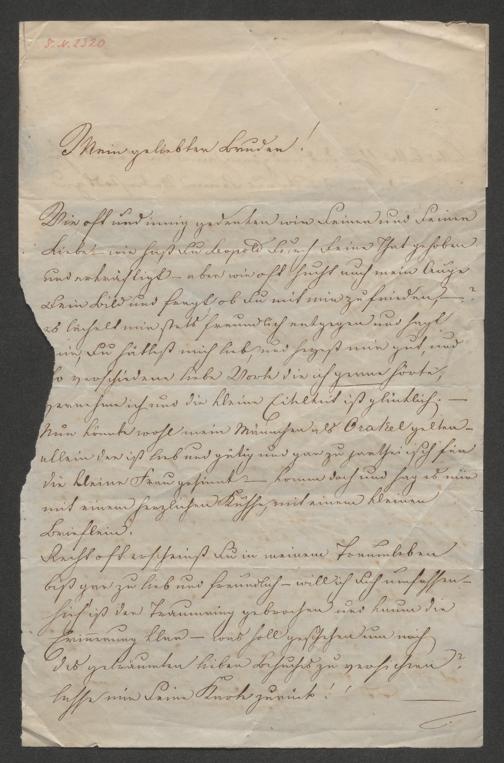 S.N. 2320
Mein geliebter Bruder!
Wie oft und innig gedenken wir Deiner und Deiner
Liebe – wie hast Du Leopold durch Deine That gehoben
und erkräftigt – aber wie oft sucht auch mein Auge
Dein Bild und fragt ob Du mit mir zufrieden – ?
es lächelt mir stets freundlich entgegen und sagt
mir, Du hättest mich lieb, und seyest mir gut, und
so verschiedene liebe Worte die ich gerne hörte,
vernehme ich und die kleine Eitelkeit ist glücklich. –
Nun könnte wohl mein Männchen als Orakel gelten –
allein der ist lieb und gütig und gar zu partheiisch für
die kleine Frau gesinnt – komm doch und sag es mir
mit einem herzlichen Kusse, mit einem kleinen
Brieflein.
Recht oft erscheinst Du in meinem Traumleben
bist gar zu lieb und freundlich – will ich Dich umfassen –
sieh ist der Traumring gebrochen und kaum die
Erinnerung klar – was soll geschehen um mich
des geträumten lieben Besuches zu versichern?
lasse mir Deine Karte zurück!